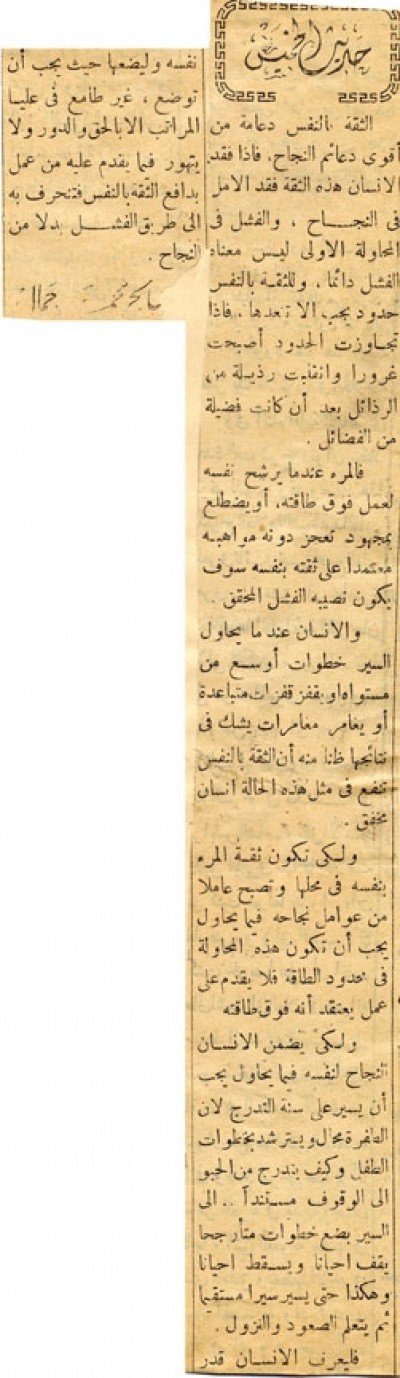 حديث الخميس
الثقة بالنفس دعامة من
أقوى دعائم النجاح، فاذا فقد
الانسان هذه الثقة فقد الامل
فى النجاح ، والفشل فى
المحاولة الاولى ليس معناه
الفشل دائما ، وللثقة بالنفس
حدود يجب الا تتعداها ، فاذا
تجاوزت الحدود أصبحت
غرورا وانقلبت رذيلة من
الرذائل بعد أن كانت فضيلة
من الفضائل .
فالمرء عندما يرشح نفسه
لعمل فوق طاقته، أو يضطلع
بمجهود تعجز دونه مواهبه
معتمدا على ثقته بنفسه سوف
يكون نصيبه الفشل المحقق .
والانسان عند ما يحاول
السير خطوات أوسع من
مستواه او يقفز قفزات متباعدة
أو يغامر مغامرات يشك فى
نتائجها ظنا منه أن الثقة بالنفس
تنفع فى مثل هذه الحالة انسان
مخفق .
ولكى تكون ثقة المرء
بنفسه فى محلها وتصبح عاملا
من عوامل نجاحه فيما يحاول
يجب أن تكون هذه المحاولة
فى حدود الطاقة فلا يقدم على
عمل يعتقد أنه فوق طاقته
ولكى يضمن الانسان
النجاح لنفسه فيما يحاول يجب
أن يسير على سنة التدرج لان
الطفرة محال ويسترشد بخطوات
الطفل وكيف يتدرج من الحبو
الى الوقوف مستنداً .. الى
السير بضع خطوات متأرجحا
يقف احيانا ويسقط احيانا
وهكذا حتى يسير سيرا مستقيما
ثم يتعلم الصعود والنزول .
فليعرف الانسان قدر
نفسه وليضعها حيث يجب أن
توضع ، غير طامع فى عليا
المراتب الا بالحق والدور ولا
يتهور فيما يقدم عليه من عمل
بدافع الثقة بالنفس فتنحرف به
الى طريق الفشل بدلا من
النجاح .
صالح محمد جمال